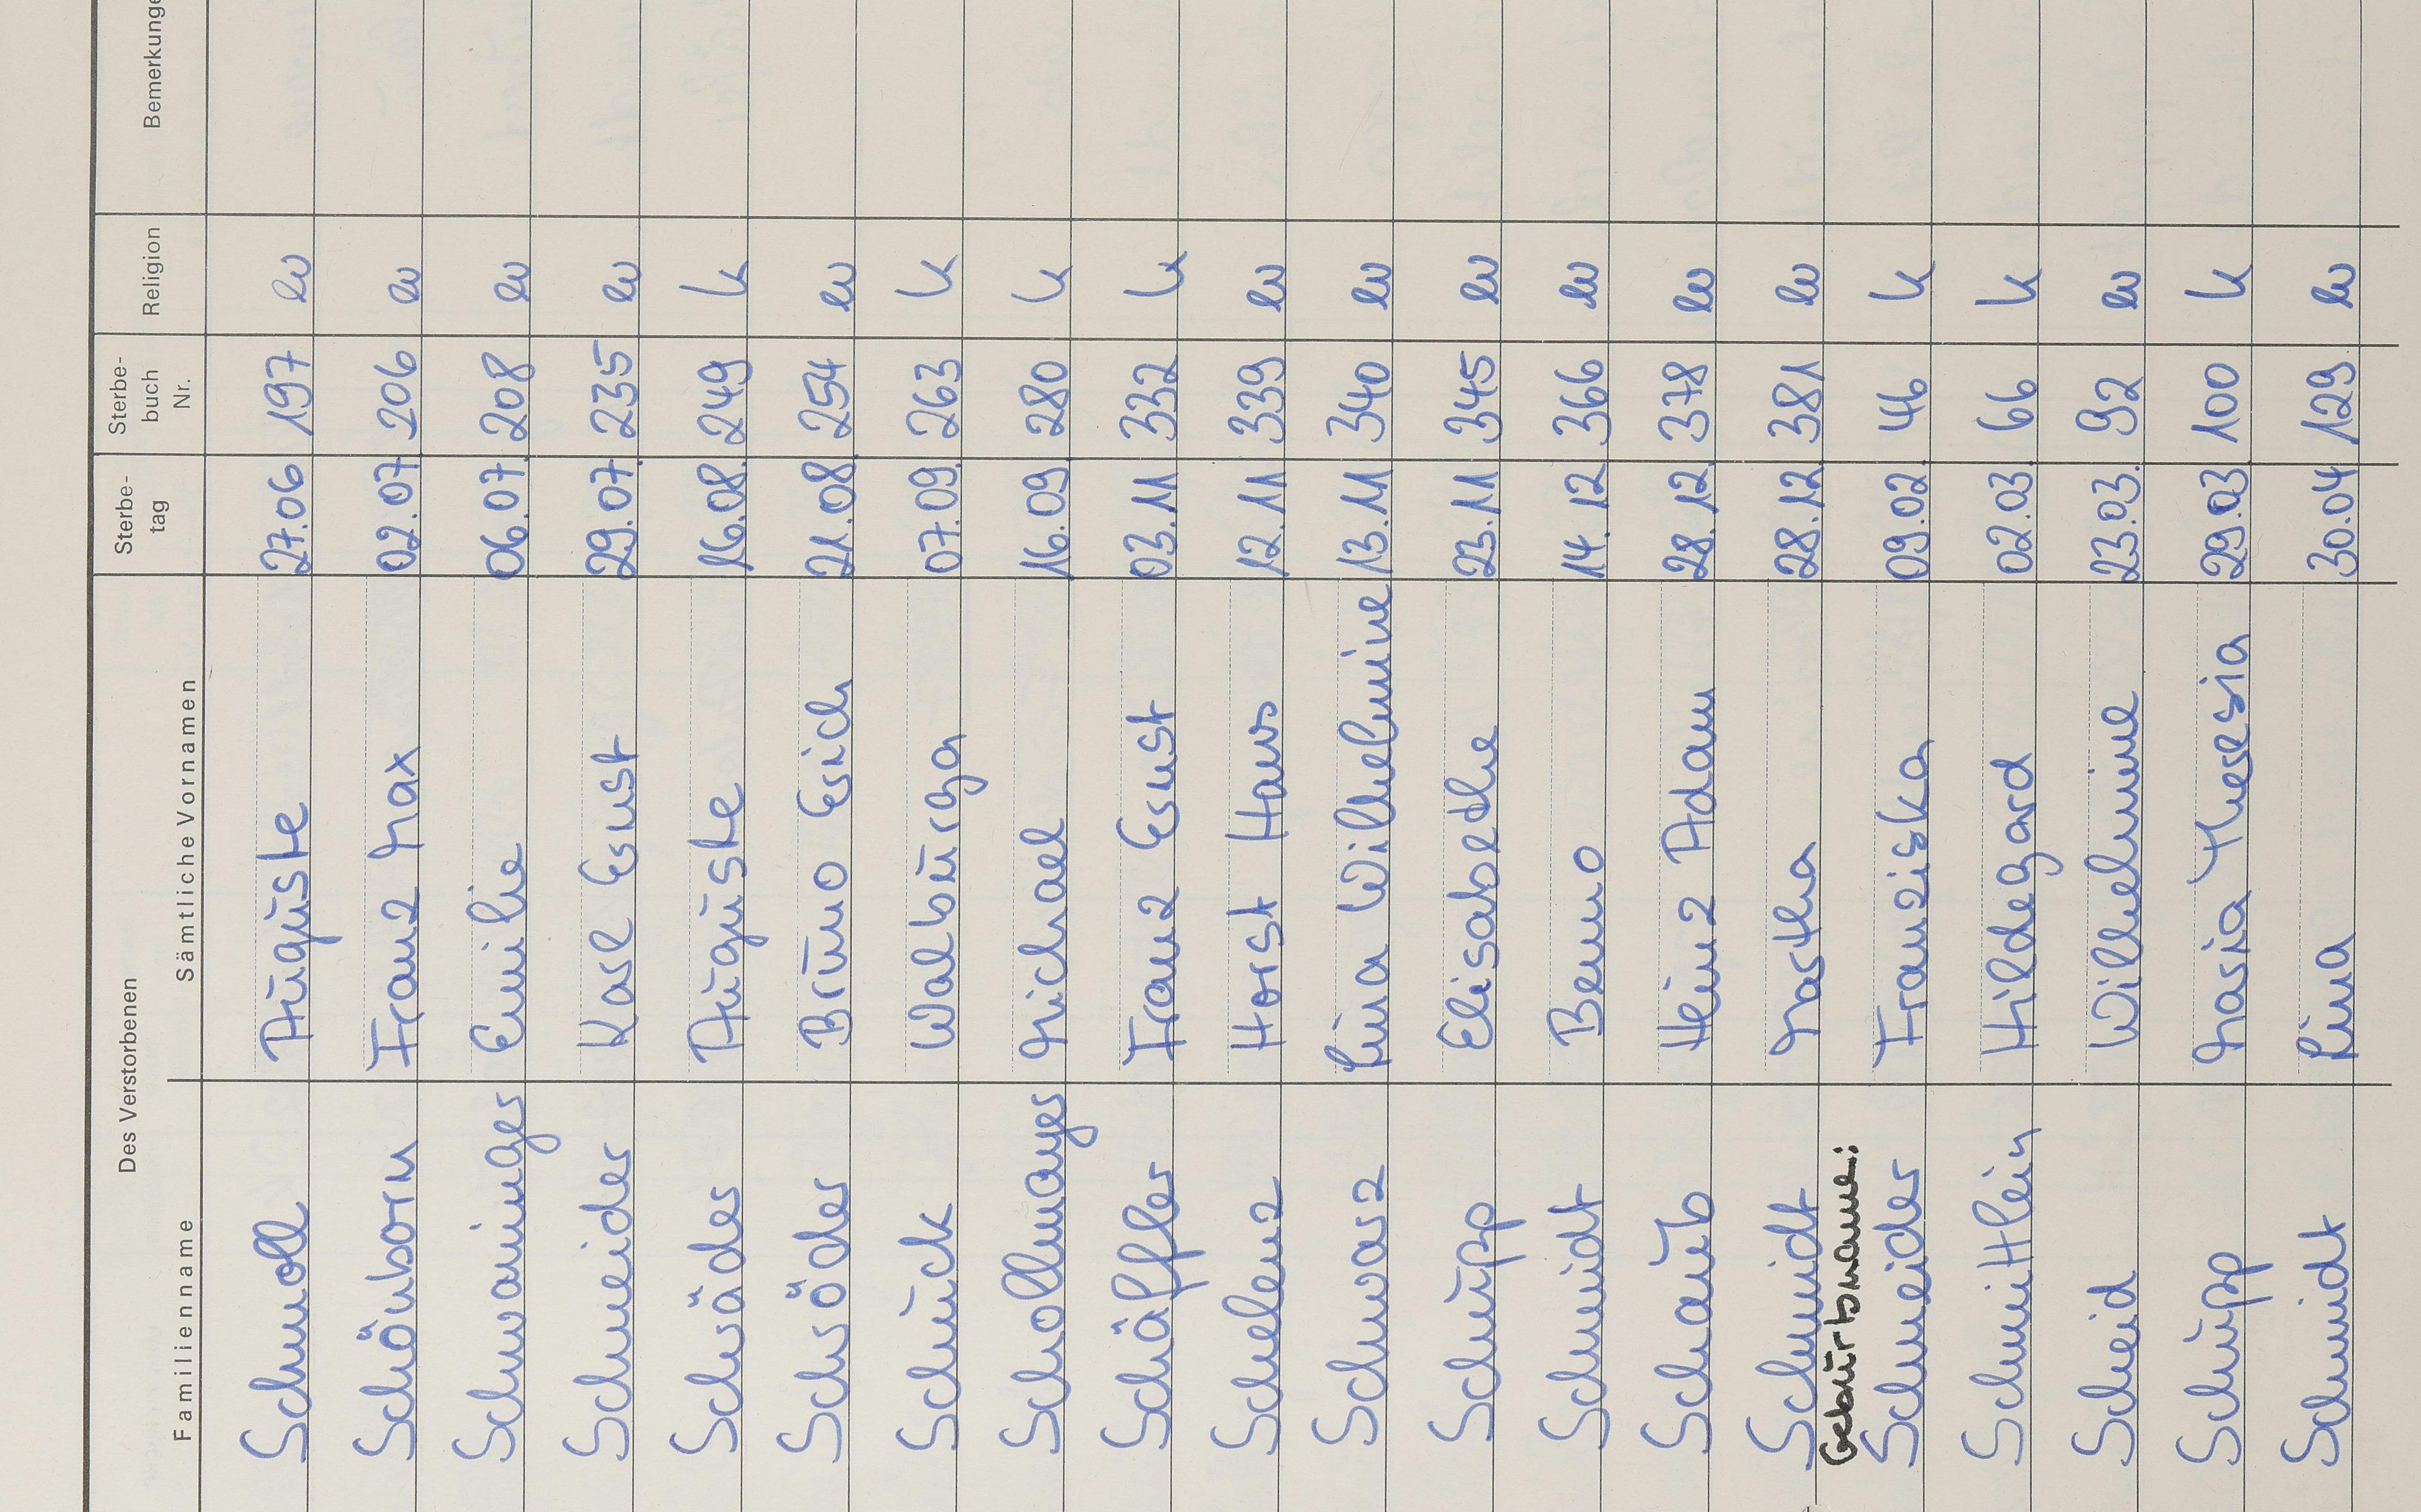 Des Verstorbenen Sterbe- Sterbe- Religion Bemerkunge
tag buch
Familienname Sämtliche Vornamen Nr.
Schmoll Auguste 27.06 197 ev
Schönborn Franz Max 02.07 206 ev
Schwaninger Emilie 06.07. 208 ev
Schneider Karl Ernst 29.07. 235 ev
Schräder Auguste 16.08. 249 k
Schröder Bruno Erich 21.08. 254 ev
Schück Walburga 07.09. 263 k
Schollmayer Michael 16.09. 280 k
Schäffler Franz Ernst 03.11 332 k
Schelenz Horst Hans 12.11 339 ev
Schwarz Lina Wilhelmine 13.11 340 ev
Schupp Elisabethe 23.11 345 ev
Schmidt Benno 14.12 366 ev
Schaub Heinz Adam 28.12. 378 ev
Schmidt Martha 28.12. 381 ev
Geburtsname:
Schneider Franziska 09.02 46 k
Schmittlein Hildegard 02.03. 66 k
Scheid Wilhelmine 23.03. 92 ev
Schupp Maria Theresia 29.03. 100 k
Schmidt Lina 30.04 129 ev